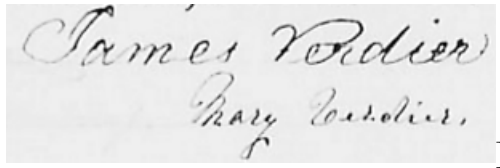 James Verdier
Mary Verdier.